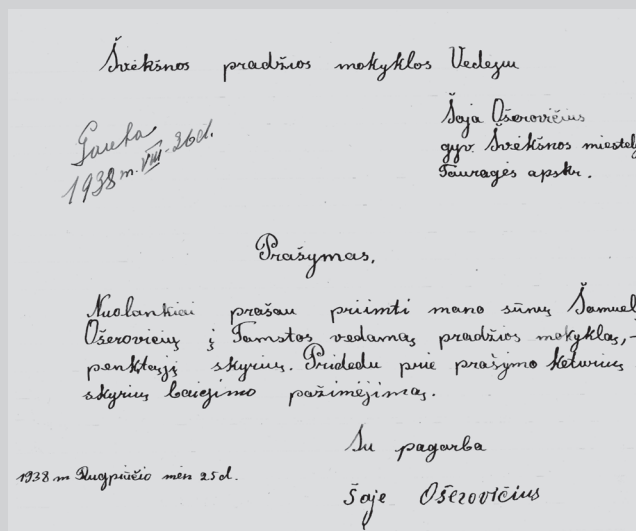 Švėkšnos pradžios mokyklos Vedėjui
Šoja Ošerovičius
gyv. Švėkšnos miestely
Tauragės apskr.
Gauta
1938 m. VIII-26 d.
Prašymas.
Nuolankiai prašau priimti mano sūnų Šamuelį
Ošerovičių į Tamstos vedamą pradžios mokyklą, -
penktąjį skyrių. Pridedu prie prašymo keturių
skyrių baigimo pažimėjimą.
Su pagarba
1938 m Rugpiučio mėn 25 d.
Šoje Ošerovičius